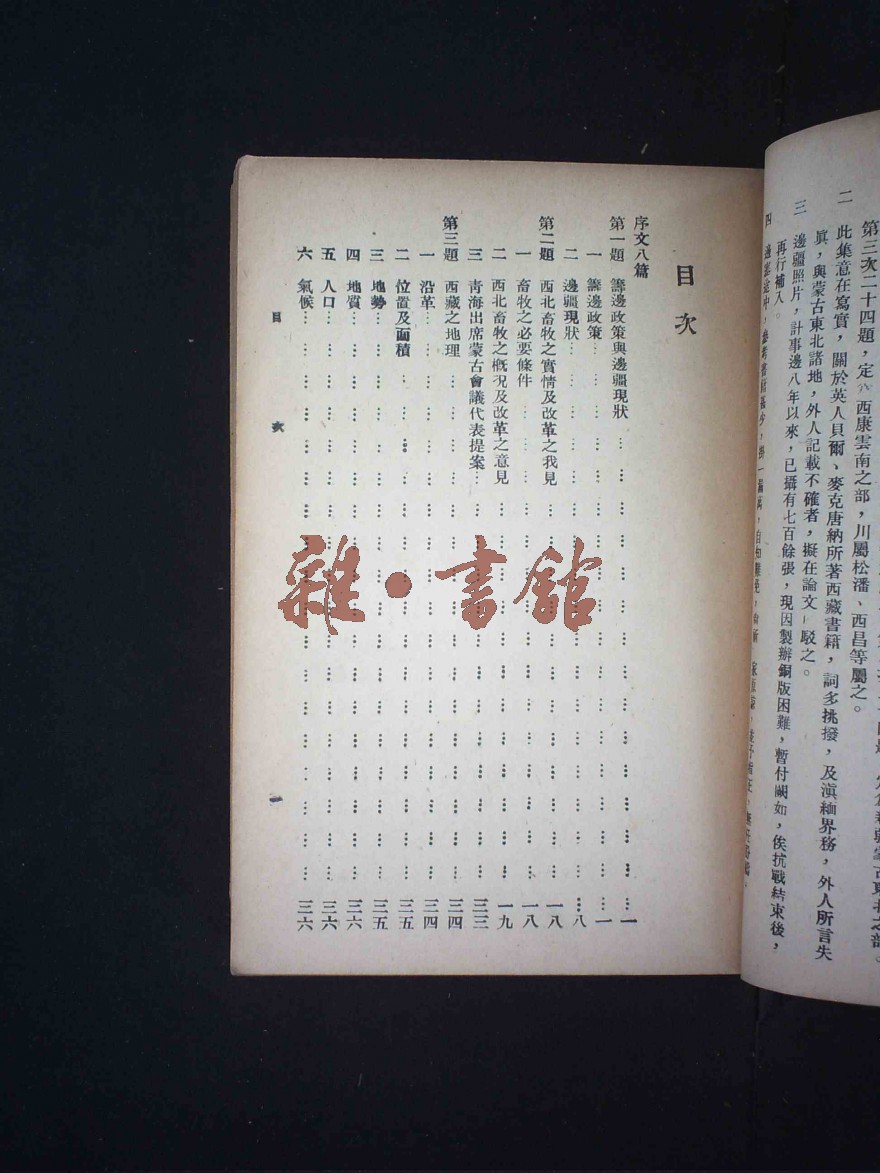 第三次二十四題，定
西康雲南之部，川屬松潘、西昌等屬之。
二
此集意在寫實，關於英人貝爾、麥克唐納所著西藏書籍，詞多挑撥，及滇緬界務，外人所言失
眞，與蒙古東北諸地，外人記載不確者，擬在論文
駁之。
三
邊疆照片，計事邊八年以來，已攝有七百餘張，現因製辦銅版困難，暫付闕如，俟抗戰結束後，
再行補入。
四
目次
序文八篇
第一題 籌邊政策與邊疆現狀……一
一 籌邊政策……一
二 邊疆現狀……八
第二題 西北畜牧之實情及改革之我見……一八
一 畜牧之必要條件……一八
二 西北畜牧之概況及改革之意見……一九
三 青海出席蒙古會議代表提案……三三
第三題 西藏之地理……三四
一 沿革……三四
二 位置及面積……三五
三 地勢……三五
四 地質……三六
五 人口……三六
六 氣候……三六
目次
一
雜·書館